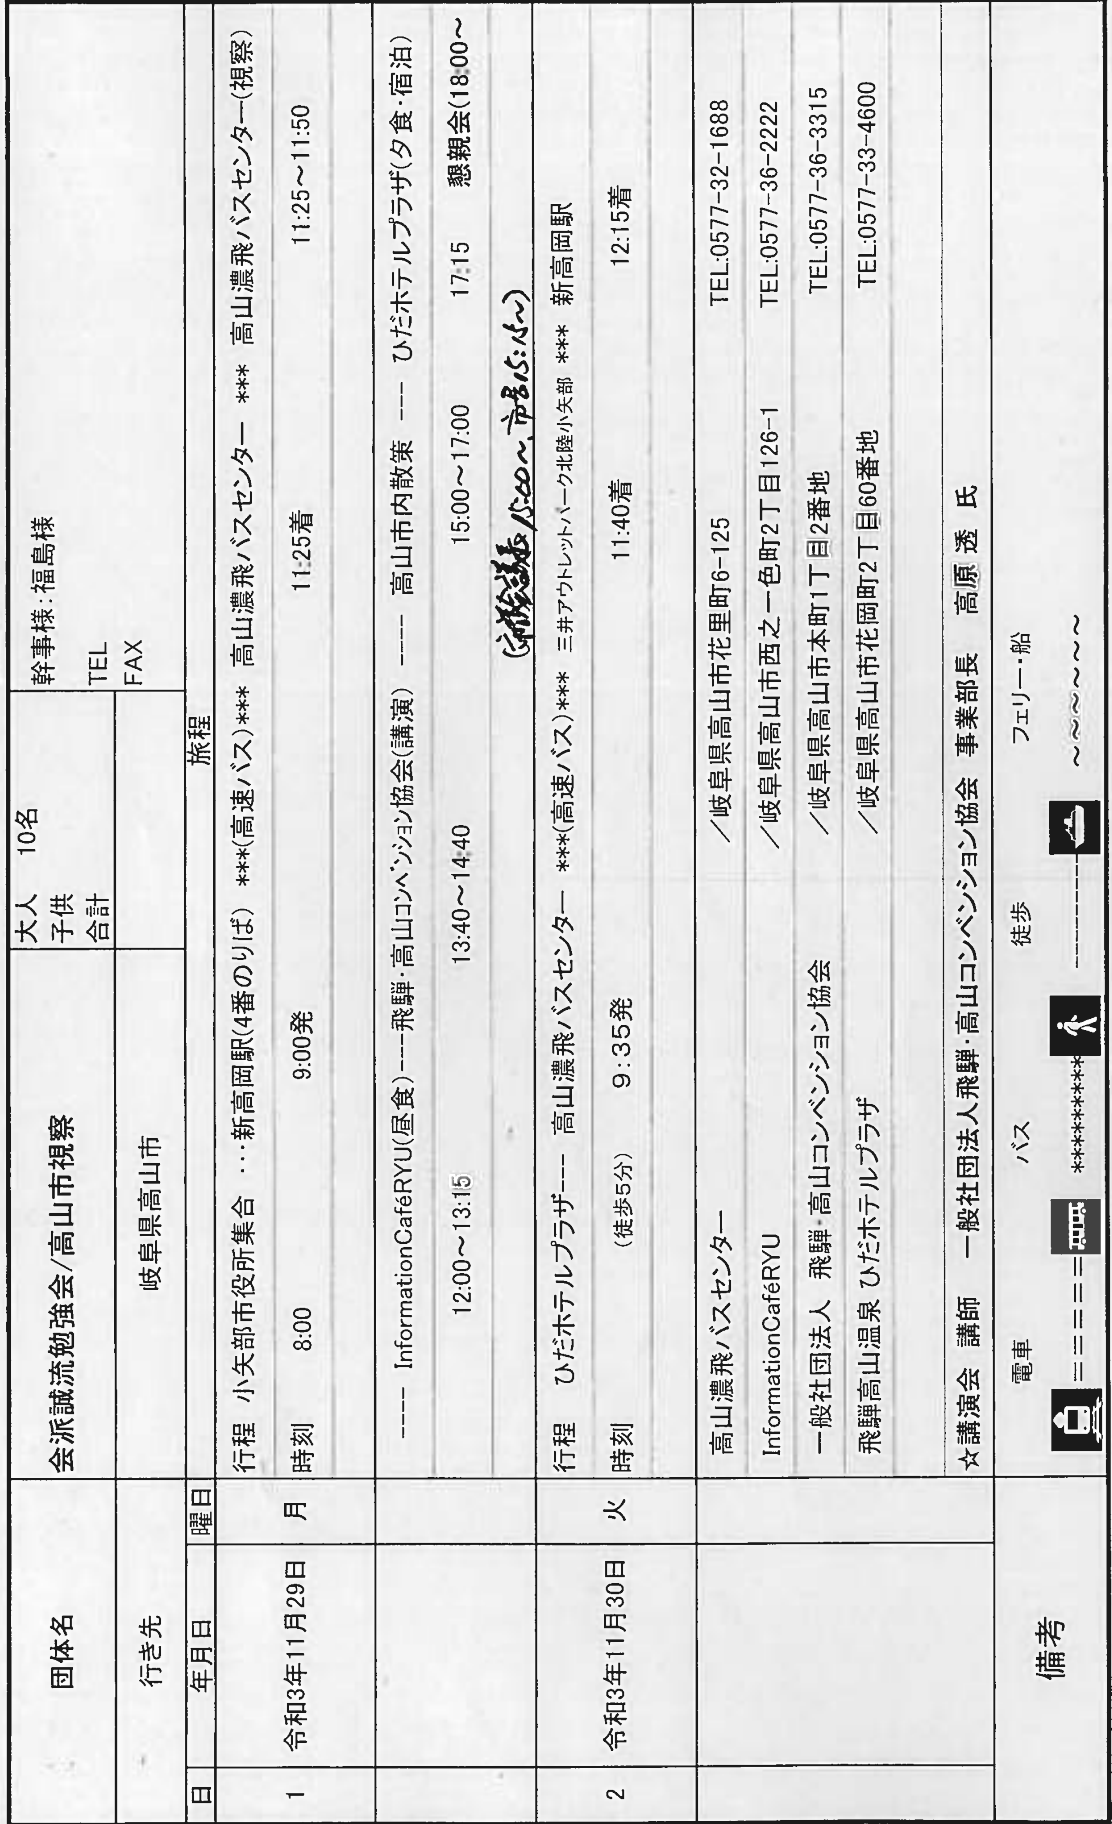 団体名 会派誠流勉強会/高山市視察 大人 10名 幹事様:福島様
子供 TEL
合計 FAX
行き先 岐阜県高山市
日 年月日 曜日 旅程
1 令和3年11月29日 月 行程 小矢部市役所集合 ・・・新高岡駅(4番のりば) ***(高速バス)*** 高山濃飛バスセンター *** 高山濃飛バスセンター(視察)
時刻 8:00 9:00発 11:25着 11:25～11:50
---- InformationCaféRYU(昼食)----飛騨・高山コンベンション協会(講演) ---- 高山市内散策 --- ひだホテルプラザ(夕食・宿泊)
12:00～13:15 13:40～14:40 15:00～17:00 17:15 懇親会(18:00～
15:00～、15:15～)
2 令和3年11月30日 火 行程 ひだホテルプラザ--- 高山濃飛バスセンター ***(高速バス)*** 三井アウトレットパーク北陸小矢部 *** 新高岡駅
時刻 (徒歩5分) 9:35発 11:40着 12:15着
高山濃飛バスセンター /岐阜県高山市花里町6-125 TEL:0577-32-1688
InformationCaféRYU /岐阜県高山市西之一色町2丁目126-1 TEL:0577-36-2222
一般社団法人 飛騨・高山コンベンション協会 /岐阜県高山市本町1丁目2番地 TEL:0577-36-3315
飛騨高山温泉 ひだホテルプラザ /岐阜県高山市花岡町2丁目60番地 TEL:0577-33-4600
☆講演会 講師 一般社団法人飛騨・高山コンベンション協会 事業部長 高原 透 氏
備考 電車 バス 徒歩 フェリー・船
====== ********* --------- ～～～～～～